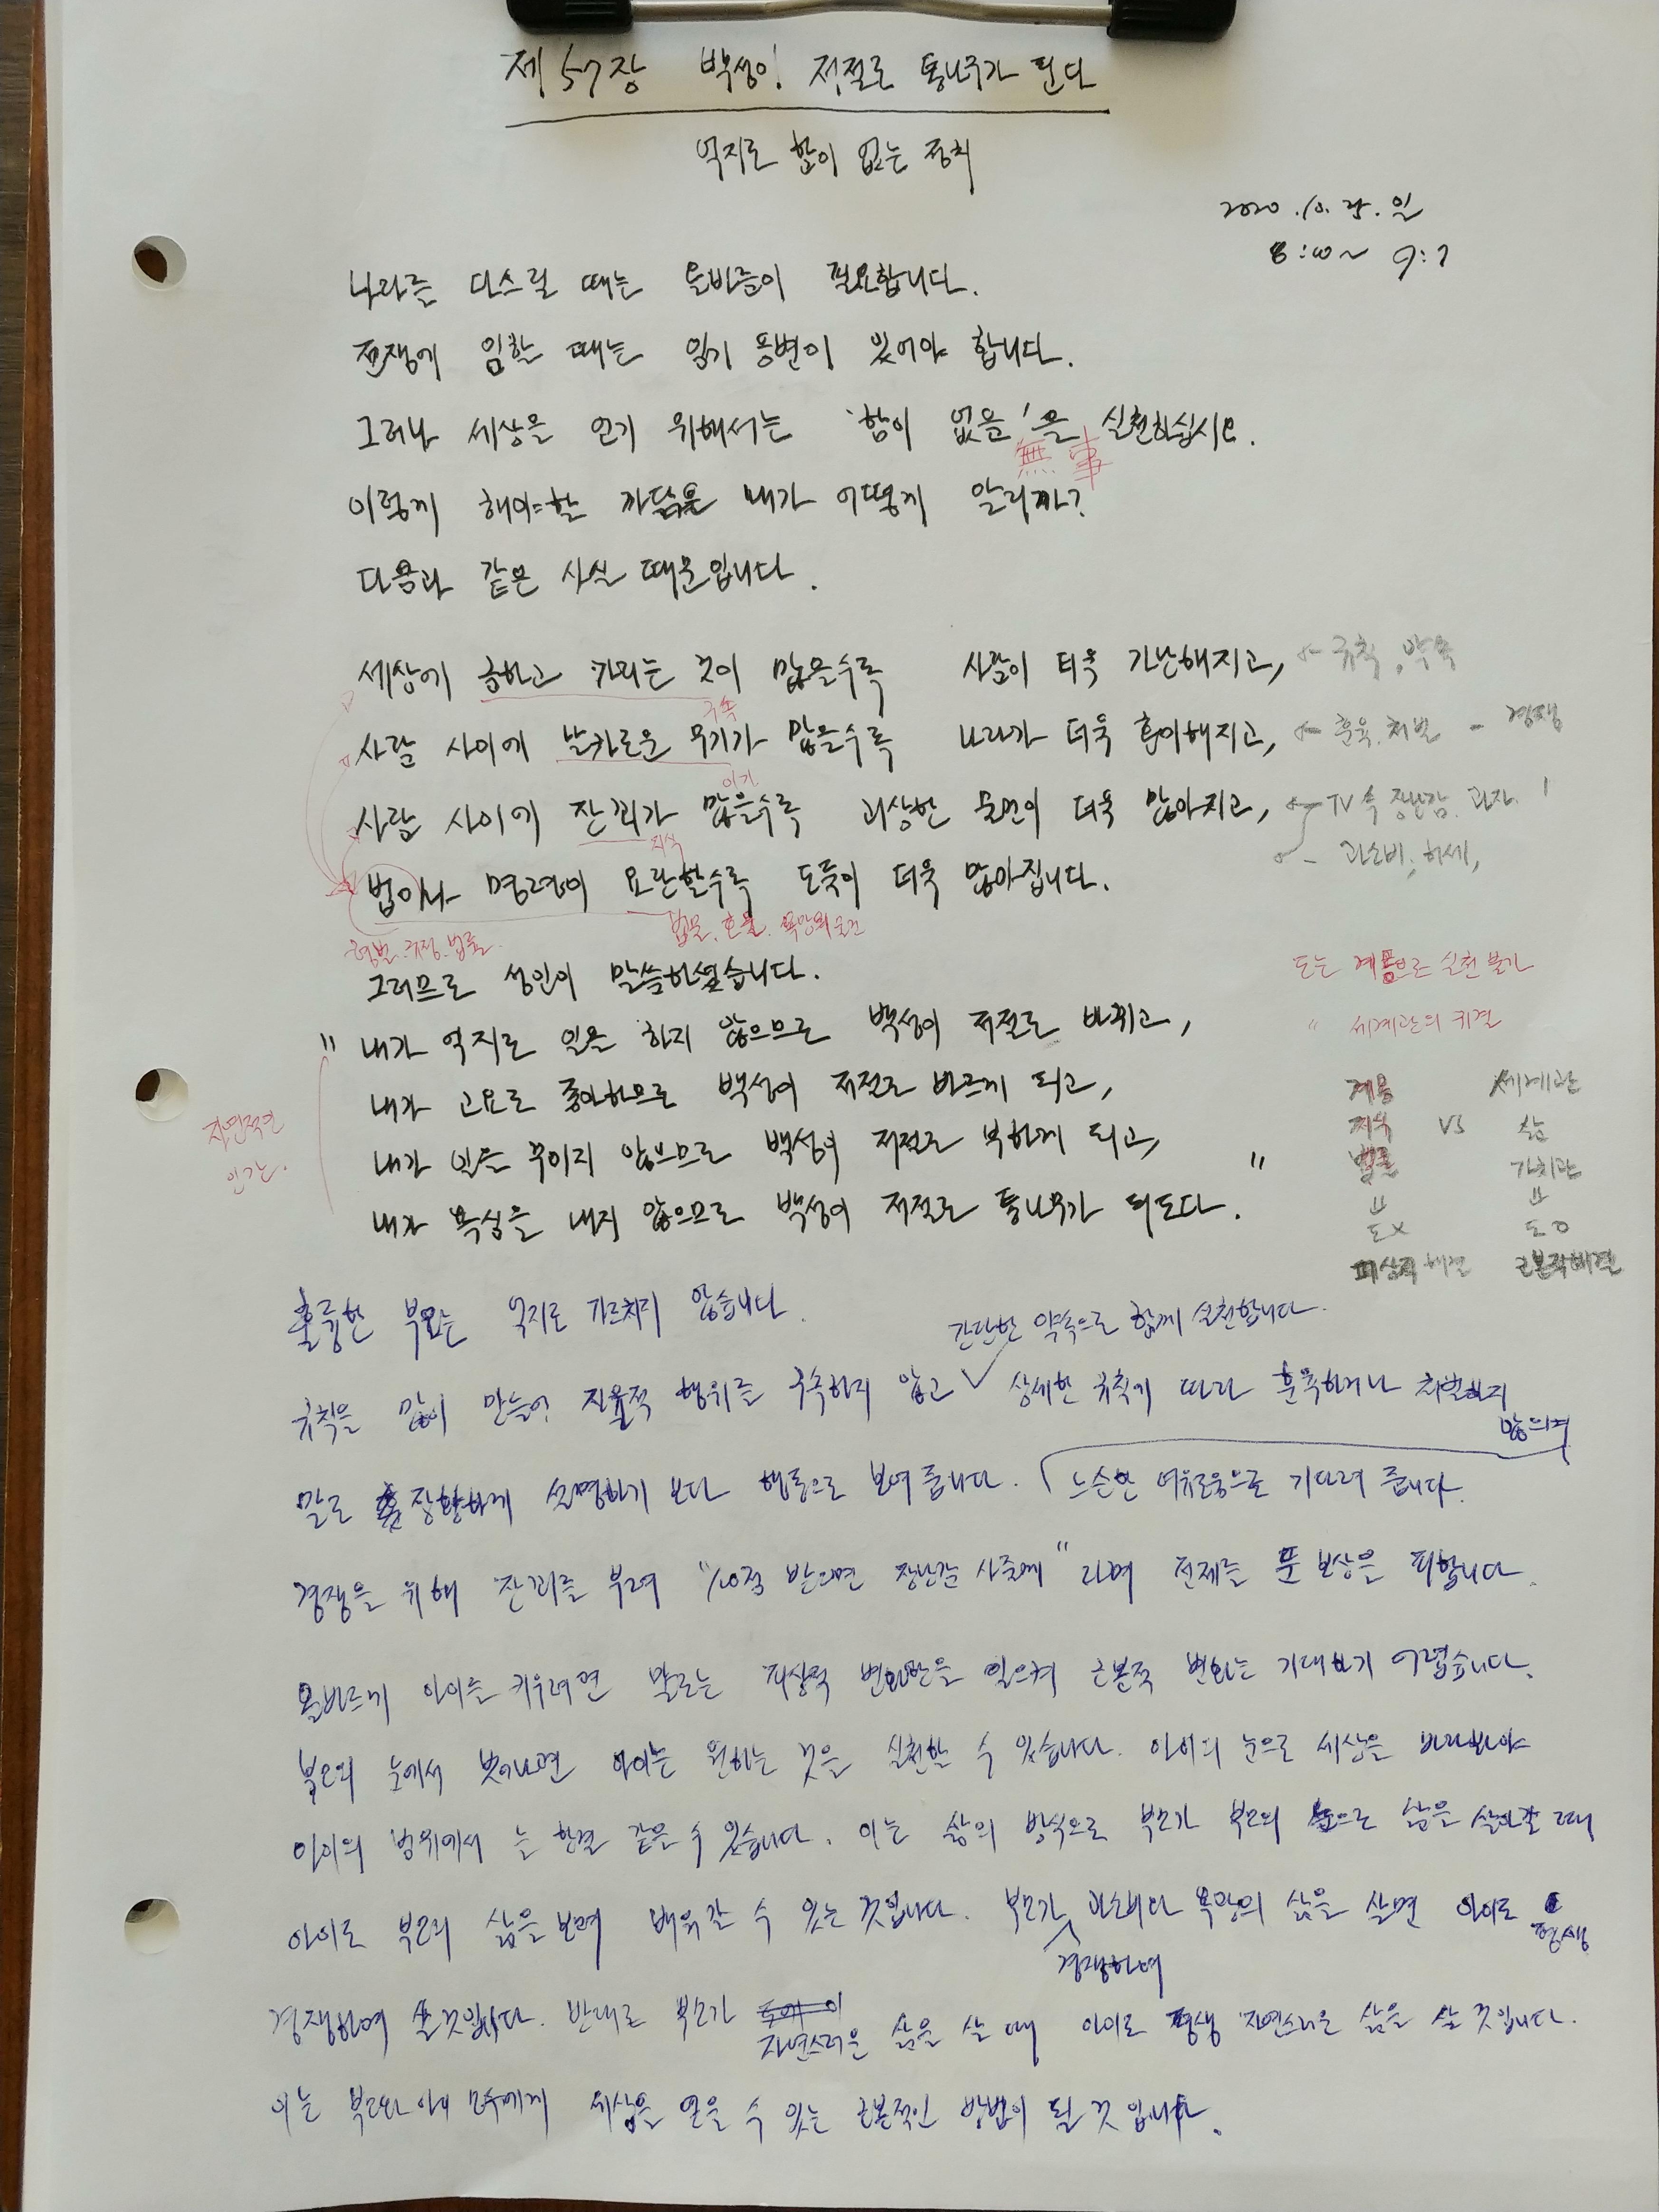 제57장 백성이 저절로 통나무가 된다
억지로 함이 없는 정치
2020.10.25.일
8:00~ 9:7
나라를 다스릴 때는 올바름이 필요합니다.
전쟁에 임할 때는 임기응변이 있어야 합니다.
그러나 세상을 얻기 위해서는 '함이 없음'을 실천하십시오.
無事
이렇게 해야할 까닭을 내가 어떻게 알리까?
다음과 같은 사실 때문입니다.
세상에 금하고 가리는 것이 많을수록 사람이 더욱 가난해지고, ← 규칙, 약속
구속
사람 사이에 날카로운 무기가 많을수록 나라가 더욱 혼미해지고, ← 훈육.처벌 - 경쟁
이기
사람 사이에 잔꾀가 많을수록 괴상한 물건이 더욱 많아지고, ← TV 속 장난감. 과자.
지식
- 과소비, 허세,
법이나 명령이 요란할수록 도둑이 더욱 많아집니다.
형벌.규정.법률. 법물. 호물. 욕망의 물건
그러므로 성인이 말씀하셨습니다.
도는 계몽으로 실천 불가
" 내가 억지로 일을 하지 않으므로 백성이 저절로 바뀌고,
" 세계관의 귀결
내가 고요를 좋아하므로 백성이 저절로 바르게 되고,
계몽 세계관
자연적인
인간.
지육 VS 삶
내가 일을 꾸미지 않으므로 백성이 저절로 부하게 되고, "
가치관
내가 욕심을 내지 않으므로 백성이 저절로 통나무가 되도다.
도X 도O
피상적 해결 근본적 해결
훌륭한 부모는 억지로 가르치지 않습니다.
간단한 약속으로 함께 실천합니다.
규칙을 많이 만들어 자율적 행위를 구속하지 않고 ✓ 상세한 규칙에 따라 훈육하거나 처벌하지
않으며
말로 장황하게 설명하기 보다 행동으로 보여 줍니다. 느슨한 여유로움으로 기다려 줍니다.
경쟁을 위해 잔꾀를 부려 "100점 받으면 장난감 사줄게"라며 전제를 둔 보상을 피합니다.
올바르게 아이를 키우려면 말로는 피상적 변화만을 일으켜 근본적 변화는 기대하기 어렵습니다.
부모의 눈에서 벗어나면 아이는 원하는 것을 실천할 수 있습니다. 아이의 눈으로 세상을 바라봐야
아이의 범위에서 는 한결 같을 수 있습니다. 이는 삶의 방식으로 부모가 부모의 눈으로 삶을 살아갈 때
아이도 부모의 삶을 보며 배워갈 수 있는 것입니다. 부모가 과소비나 욕망의 삶을 살면 아이도 평생
경쟁하며
경쟁하며 살 것입니다. 반대로 부모가 자연스러운 삶을 살 때 아이도 평생 자연스러운 삶을 살 것입니다.
이는 부모와 아이 모두에게 세상을 얻을 수 있는 근본적인 방법이 될 것입니다.